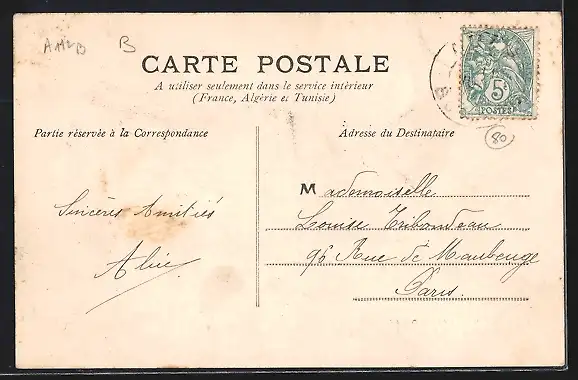 A112B
B
CARTE POSTALE
A utiliser seulement dans le service intérieur
(France, Algérie et Tunisie)
5c
POSTES
80
Partie réservée à la Correspondance
Adresse du Destinataire
Mademoiselle
Louise Tribondeau
96 Rue de Maubeuge
Paris.
Sincères Amitiés
Alice